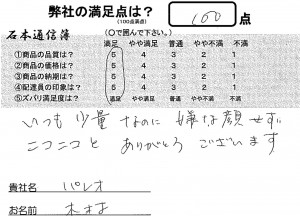 弊社の満足点は? 100 点
(100点満点)
石本通信簿 (〇で囲んで下さい。)
満足 やや満足 普通 やや不満 不満
①商品の品質は? 5 4 3 2 1
②商品の価格は? 5 4 3 2 1
③商品の納期は? 5 4 3 2 1
④配達員の印象は? 5 4 3 2 1
⑤ズバリ満足度は? 満足 やや満足 普通 やや不満 不満
いつも少量なのに嫌な顔せず
ニコニコと ありがとうございます
貴社名 パレオ
お名前